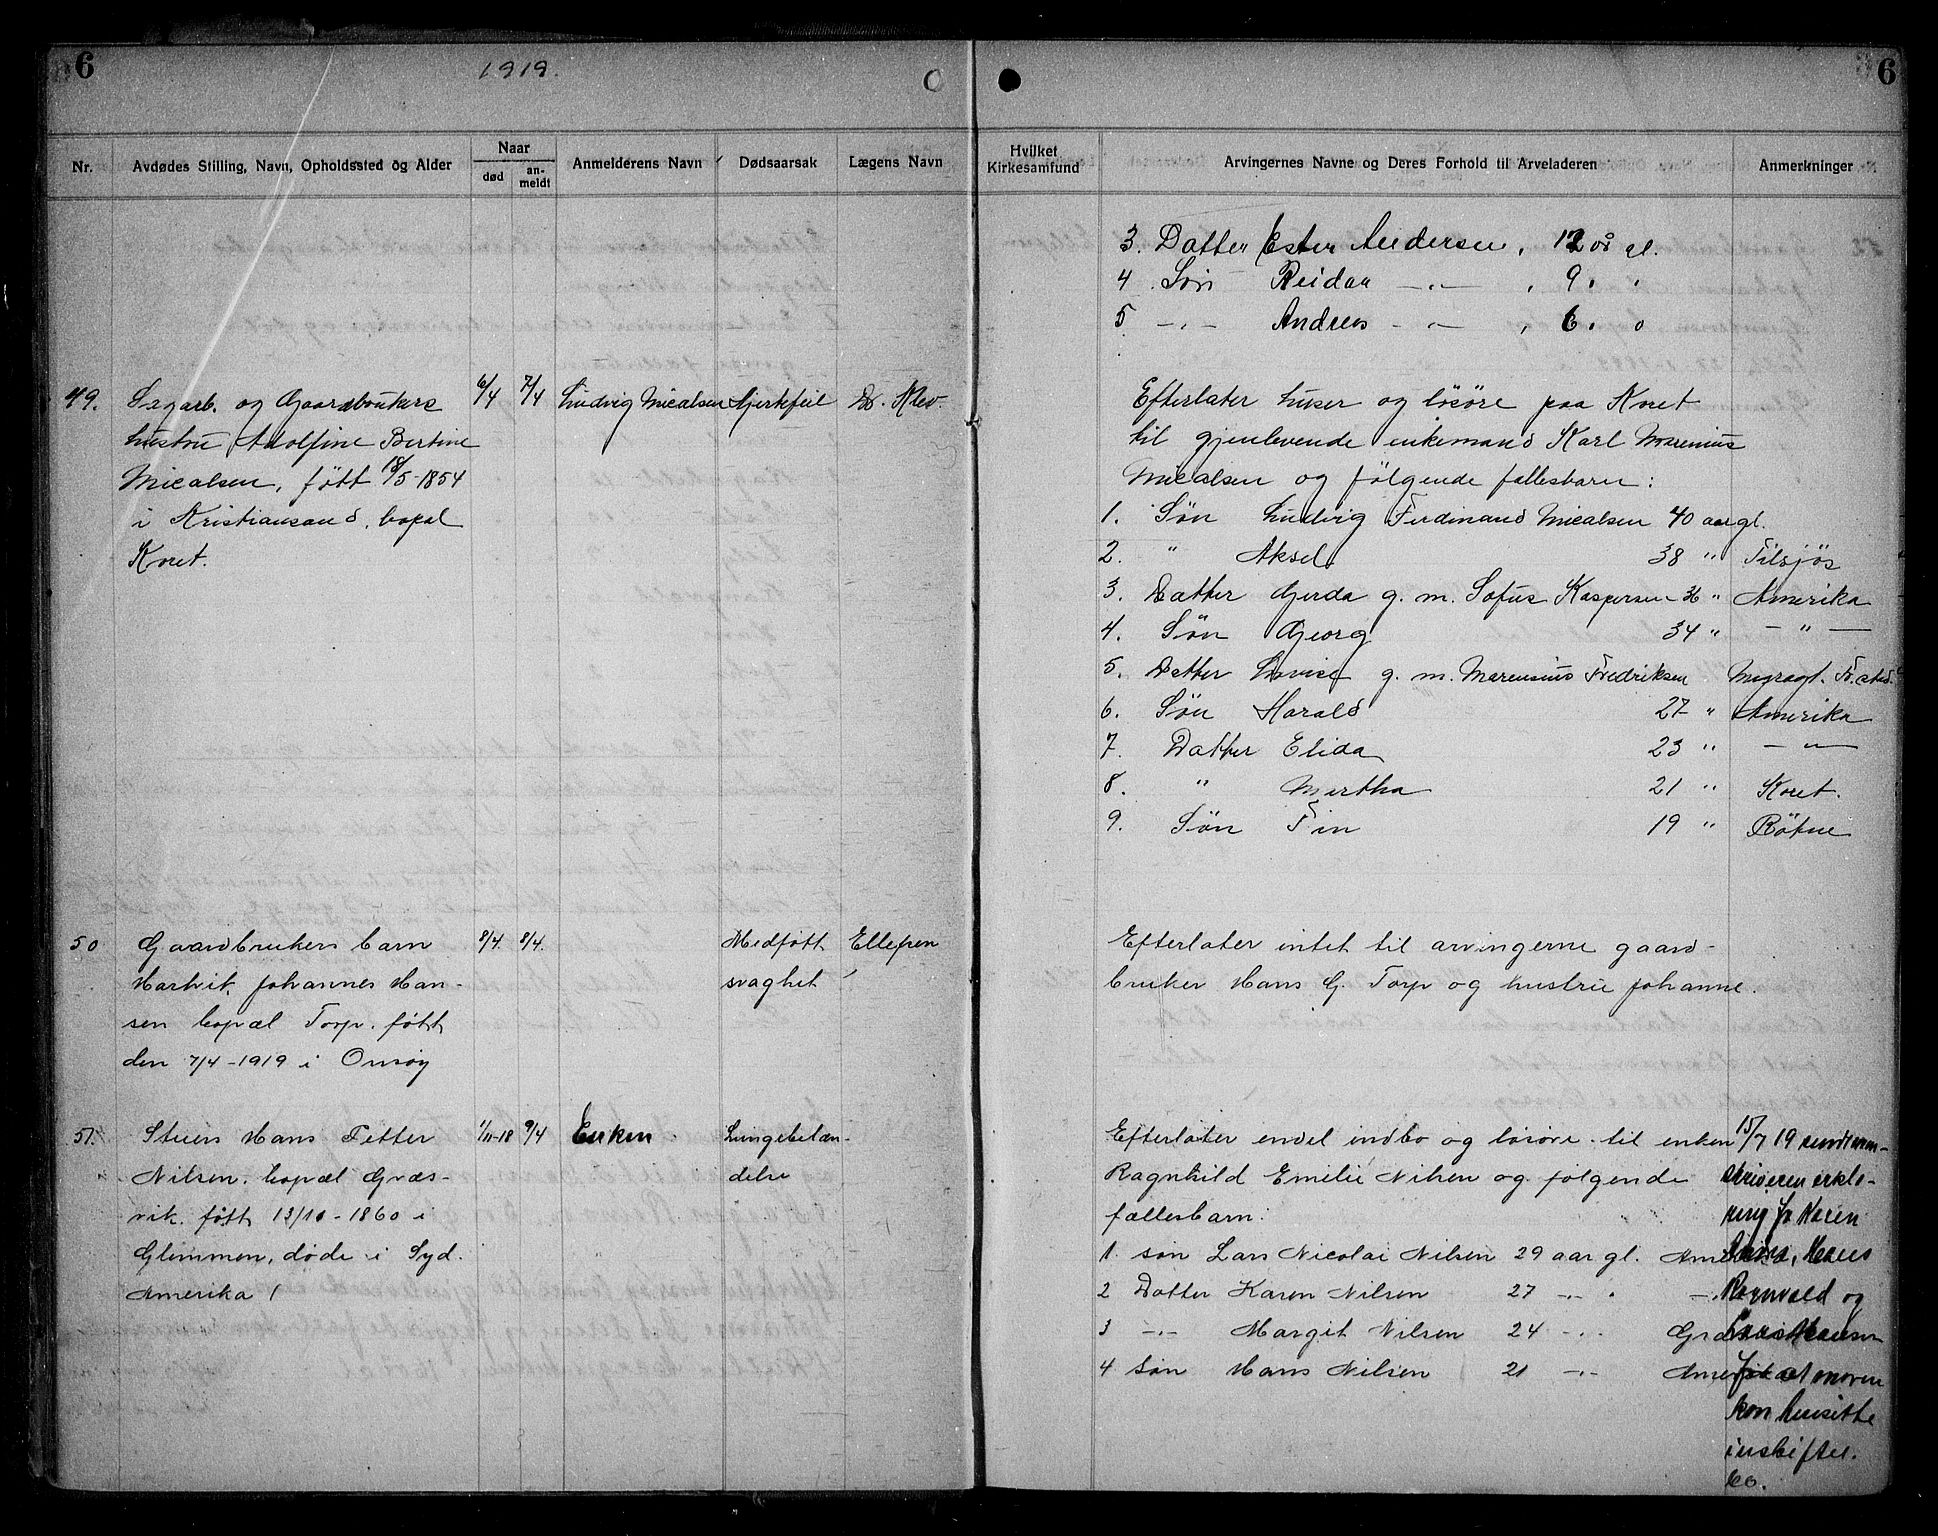 6
1919.
6
Nr.
Avdødes Stilling, Navn, Opholdssted og Alder
Naar
død
an-
meldt
Anmelderens Navn
Dødsaarsak
Lægens Navn
Hvilket
Kirkesamfund
Arvingernes Navne og Deres Forhold til Arveladeren
Anmerkninger
3. Datter Ester Andersen, 12 år gl.
4. Søn Reidar —〃— , 9 〃 〃
5 —〃— Andreas —〃— , 6 〃 〃
49.
Sagarb. og Gaardbrukers
hustru Adolfine Bertine
Micalsen, født 18/5-1854
i Kristiansand, bopæl
Koret.
6/4
7/4
Ludvig Micalsen
Hjertefeil
Dr. Klev
Efterlater huser og løsøre paa Koret
til gjenlevende enkemand Karl Marenius
Micalsen og følgende fællesbarn:
1. Søn Ludvig Ferdinand Micalsen 40 aar gl.
2. " Aksel 38 " Tilsjøs
3. Datter Gerda g. m. Sofus Kaspersen 36 " Amerika
4. Søn Georg 34 " — " —
5. Datter Lovise g. m. Marensius Fredriksen
6. Søn Harald 27 " Amerika
7. Datter Elida 23 " — " —
8. " Martha 21 " Koret.
9. Søn Fin 19 " Røtne
50
Gaardbrukers barn
Hartvik Johannes Han-
sen bopæl Torp. født
den 7/4-1919 i Onsøy
8/4.
8/4.
Medføtt
svaghet
Ellefsen
Efterlater intet til arvingerne gaard-
bruker Hans G. Torp og hustru Johanne.
51.
Stuers Hans Petter
Nilsen. bopæl Græs-
vik. født 13/10-1860 i
Glemmen, døde i Syd.
Amerika
1/11-18
9/4
Enken
Lungebetæn-
delse
Efterlater endel indbo og løsøre til enken
Ragnhild Emelie Nilsen og følgende
fællesbarn:
1. søn Lars Nicolai Nilsen 29 aar gl.
2 Datter Karen Nilsen 27 —〃— 〃
3 —〃— Margit Nilsen 24 —〃—
4 Søn Hans Nilsen 21 —〃—
15/7 19 sendt
skriveren erklæ-
ring fra Karen
Hans
Ragnvald og
Hansen
for at moren
kan hensitte
i uskiftet
bo.